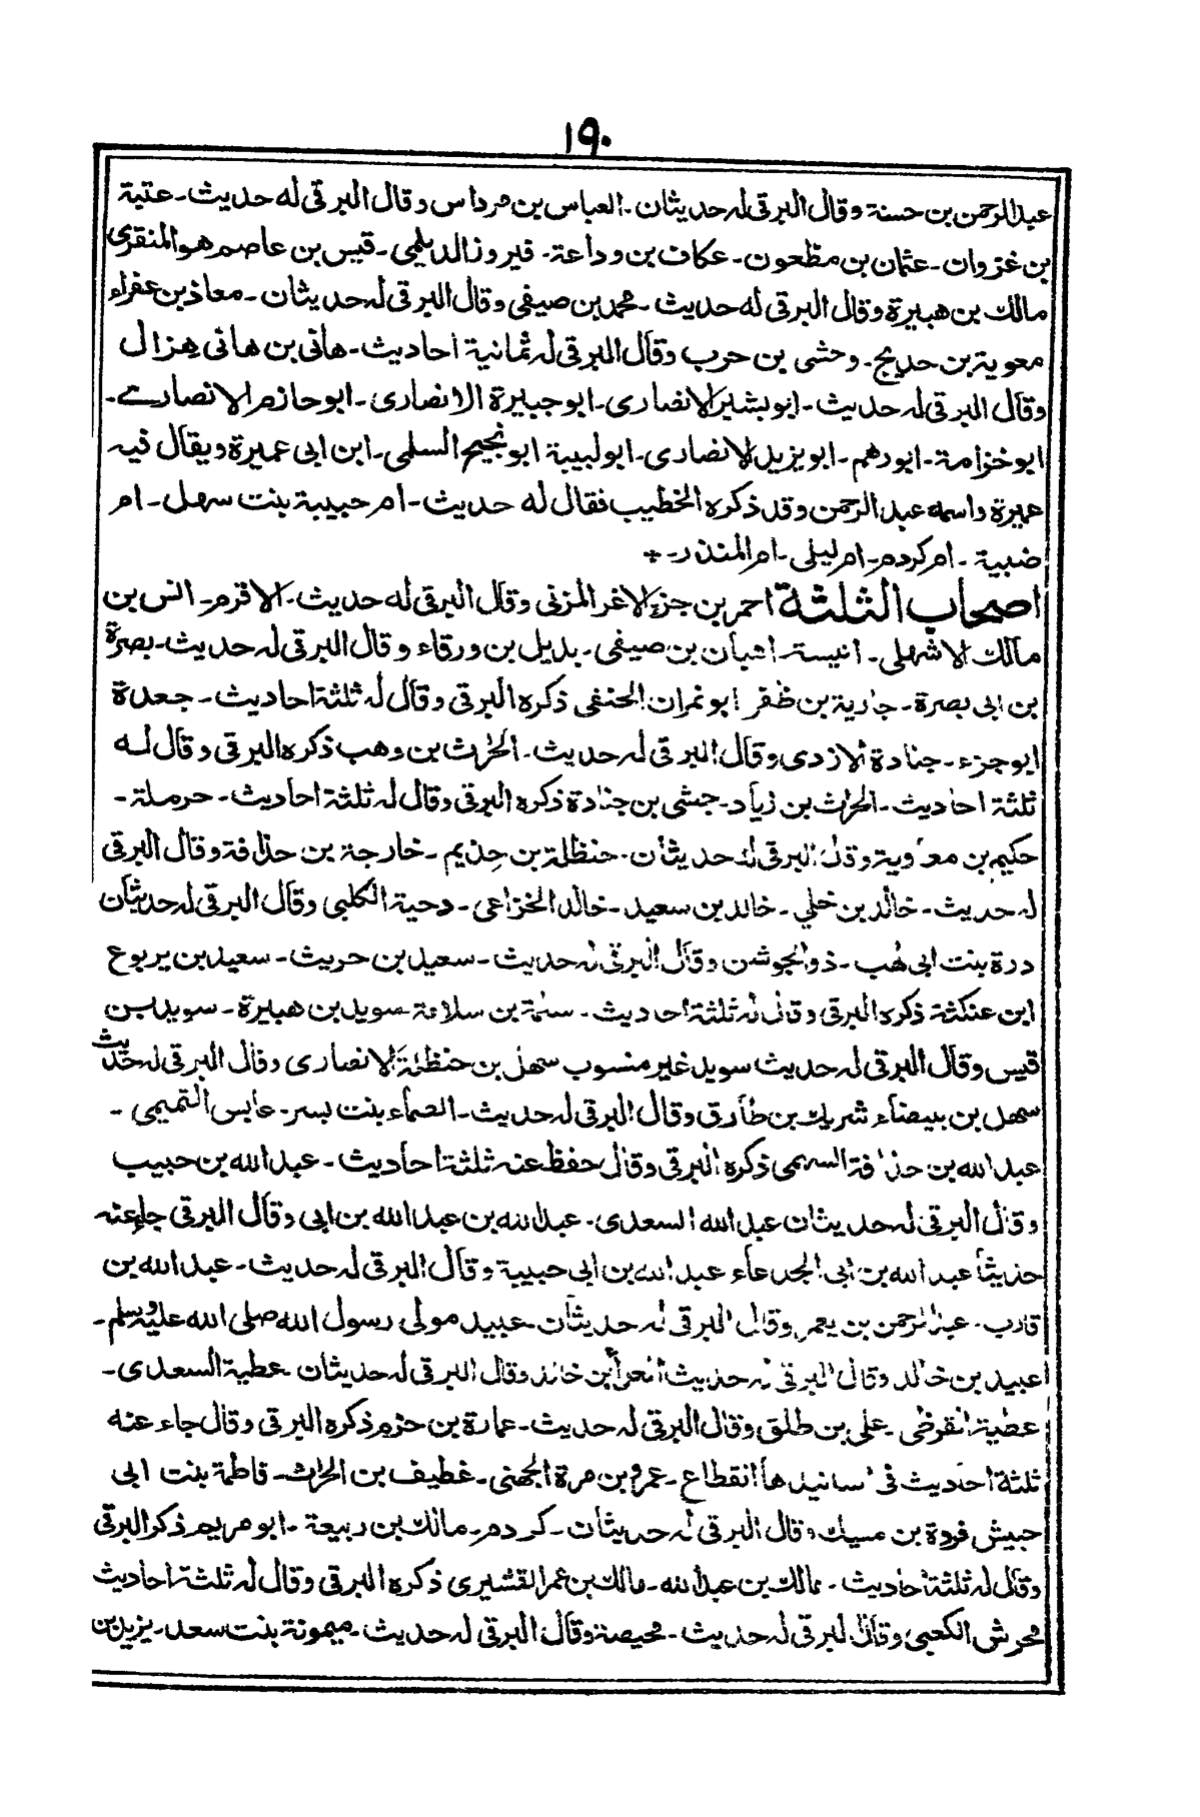 ١٩٠
عبدالرحمن بن حسنة وقال البرقى له حديثان۔ العباس بن مرداس وقال البرقى له حديث۔ عتبة
بن غزوان۔ عثمان بن مظعون۔ عكاف بن وداعة۔ فيروز الديلمي۔ قيس بن عاصم هو المنقرى
مالك بن هبيرة وقال البرقى له حديث۔ محمد بن صيفى وقال البرقى له حديثان۔ معاذ بن عفراء
معوية بن حديج۔ وحشى بن حرب وقال البرقى له ثمانية احاديث۔ هانى بن هانى هزال
وقال البرقى له حديث۔ ابو بشير الانصارى۔ ابو جبيرة الانصارى۔ ابو حازم الانصارے۔
ابو خزامة۔ ابو رهم۔ ابو يزيد الانصارى۔ ابو لبيبة ابو نجيح السلمى۔ ابن ابى عميرة ويقال فيه
عميرة واسمه عبد الرحمن وقد ذكره الخطيب فقال له حديث۔ ام حبيبة بنت سهل۔ ام
ضبية۔ ام كردم۔ ام ليلى۔ ام المنذر۔
اصحاب الثلثة احمر بن جزء الاغر المزنى وقال البرقى له حديث۔ الاقرم۔ انس بن
مالك الاشهلى۔ انيسة۔ اهبان بن صيفى۔ بديل بن ورقاء وقال البرقى له حديث۔ بصرة
بن ابى بصرة۔ جارية بن ظفر ابو نمران الحنفى ذكره البرقى وقال له ثلثة احاديث۔ جعدة
ابو جزء۔ جنادة الازدى وقال البرقى له حديث۔ الحرث بن وهب ذكره البرقى وقال له
ثلثة احاديث۔ الحرث بن زياد۔ حبشى بن جنادة ذكره البرقى وقال له ثلثة احاديث۔ حرملة۔
حكيم بن معوية وقال البرقى له حديثان۔ حنظلة بن حذيم۔ خارجة بن حذافة وقال البرقى
له حديث۔ خالد بن خلي۔ خالد بن سعيد۔ خالد الخزاعى۔ دحية الكلبى وقال البرقى له حديثان
درة بنت ابى لهب۔ ذو الجوشن وقال البرقى له حديث۔ سعيد بن حريث۔ سعيد بن يربوع
ابن عنكثة ذكره البرقى وقال له ثلثة احاديث۔ سلمة بن سلامة۔ سويد بن هبيرة۔ سويد بن
قيس وقال البرقى له حديث سويد غير منسوب سهل بن حنظلة الانصارى وقال البرقى له حديث
سهل بن بيضاء شريك بن طارق وقال البرقى له حديث۔ الصماء بنت بسر۔ عابس التميمى۔
عبد الله بن حذافة السهمى ذكره البرقى وقال حفظ عنه ثلثة احاديث۔ عبد الله بن حبيب
وقال البرقى له حديثان عبد الله السعدى۔ عبد الله بن عبد الله بن ابى وقال البرقى جاء عنه
حديثا عبد الله بن ابى الجدعاء عبد الله بن ابى حبيبة وقال البرقى له حديث۔ عبد الله بن
قارب۔ عبد الرحمن بن يعمر وقال البرقى له حديثان۔ عبيد مولى رسول الله صلى الله عليه وسلم۔
عبيد بن خالد وقال البرقى له حديث العرا بن خالد وقال البرقى له حديثان عطية السعدى۔
عطية القرظى۔ على بن طلق وقال البرقى له حديث۔ عمارة بن حزم ذكره البرقى وقال جاء عنه
ثلثة احاديث فى اسانيدها انقطاع۔ عمرو بن مرة الجهنى۔ غطيف بن الحرث۔ فاطمة بنت ابى
حبيش فروة بن مسيك وقال البرقى له حديثان۔ كردم۔ مالك بن ربيعة۔ ابو مريم ذكر البرقى
وقال له ثلثة احاديث۔ مالك بن عبد الله۔ مالك بن عمر القشيرى ذكره البرقى وقال له ثلثة احاديث
محرش الكعبى وقال البرقى له حديث۔ محيصة وقال البرقى له حديث۔ ميمونة بنت سعد۔ يزيد بن